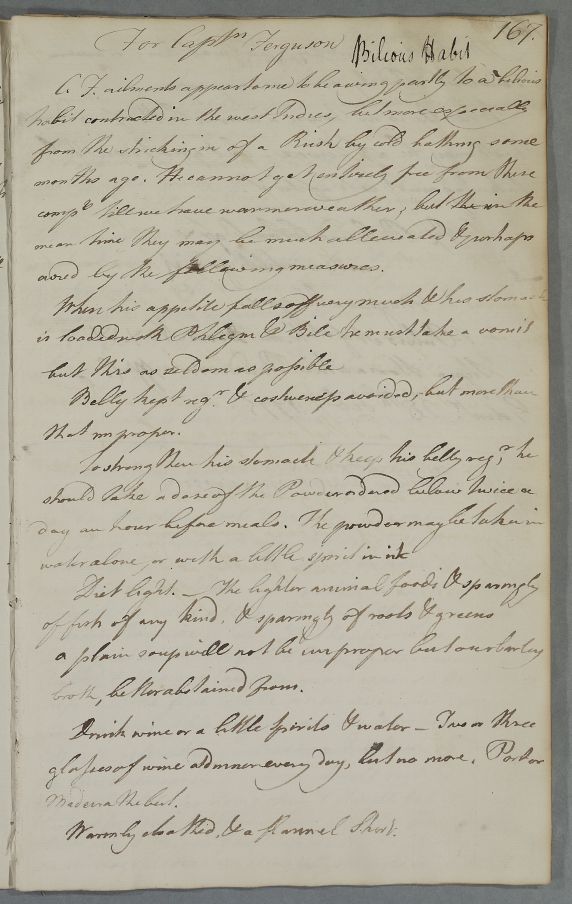 167.
For Captn Ferguson Bilious Habit
C. F. ailments appear to me to be owing partly to a bilious
habit contracted in the west Indies, but more especially
from the striking in of a Rash by cold bathing some
months ago. He cannot get entirely free from these
compts till we have warmer weather, but the in the
mean time they may be much alleviated & perhaps
cured by the following measures.
When his appetite falls off very much & his stomach
is loaded with Phlegm & Bile he must take a vomit
but this as seldom as possible
Belly kept regr & costiveness avoided, but more than
that improper.
To strengthen his stomach & keep his belly regr, he
should take a dose of the Powder ordered below twice a
day an hour before meals. The powder may be taken in
water alone, or with a little spirit in it
Diet light. — The lighter animal foods & sparingly
of fish of any kind, & sparingly of roots & greens
a plain soup will not be improper but our barley
broth, better abstained from.
Drink wine or a little spirits & water — Two or three
glasses of wine at dinner every day, but no more. Port or
Madeira the best.
Warmly cloathed, & a flannel Shirt.